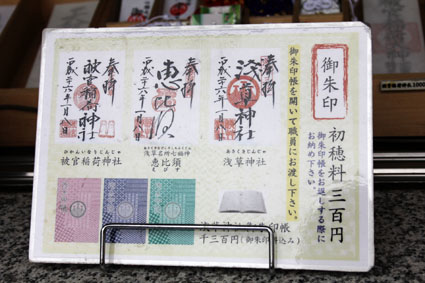 御朱印
初穂料 三百円
御朱印帳をお返しする際に
お納め下さい。
御朱印帳を開いて職員にお渡し下さい。
奉拝
浅草神社
奉拝
恵比須
奉拝
被官稲荷神社
あさくさじんじゃ
浅草神社
浅草名所七福神
恵比須
えびす
ひかんいなりじんじゃ
被官稲荷神社
浅草神社御朱印帳
千三百円(御朱印料込み)